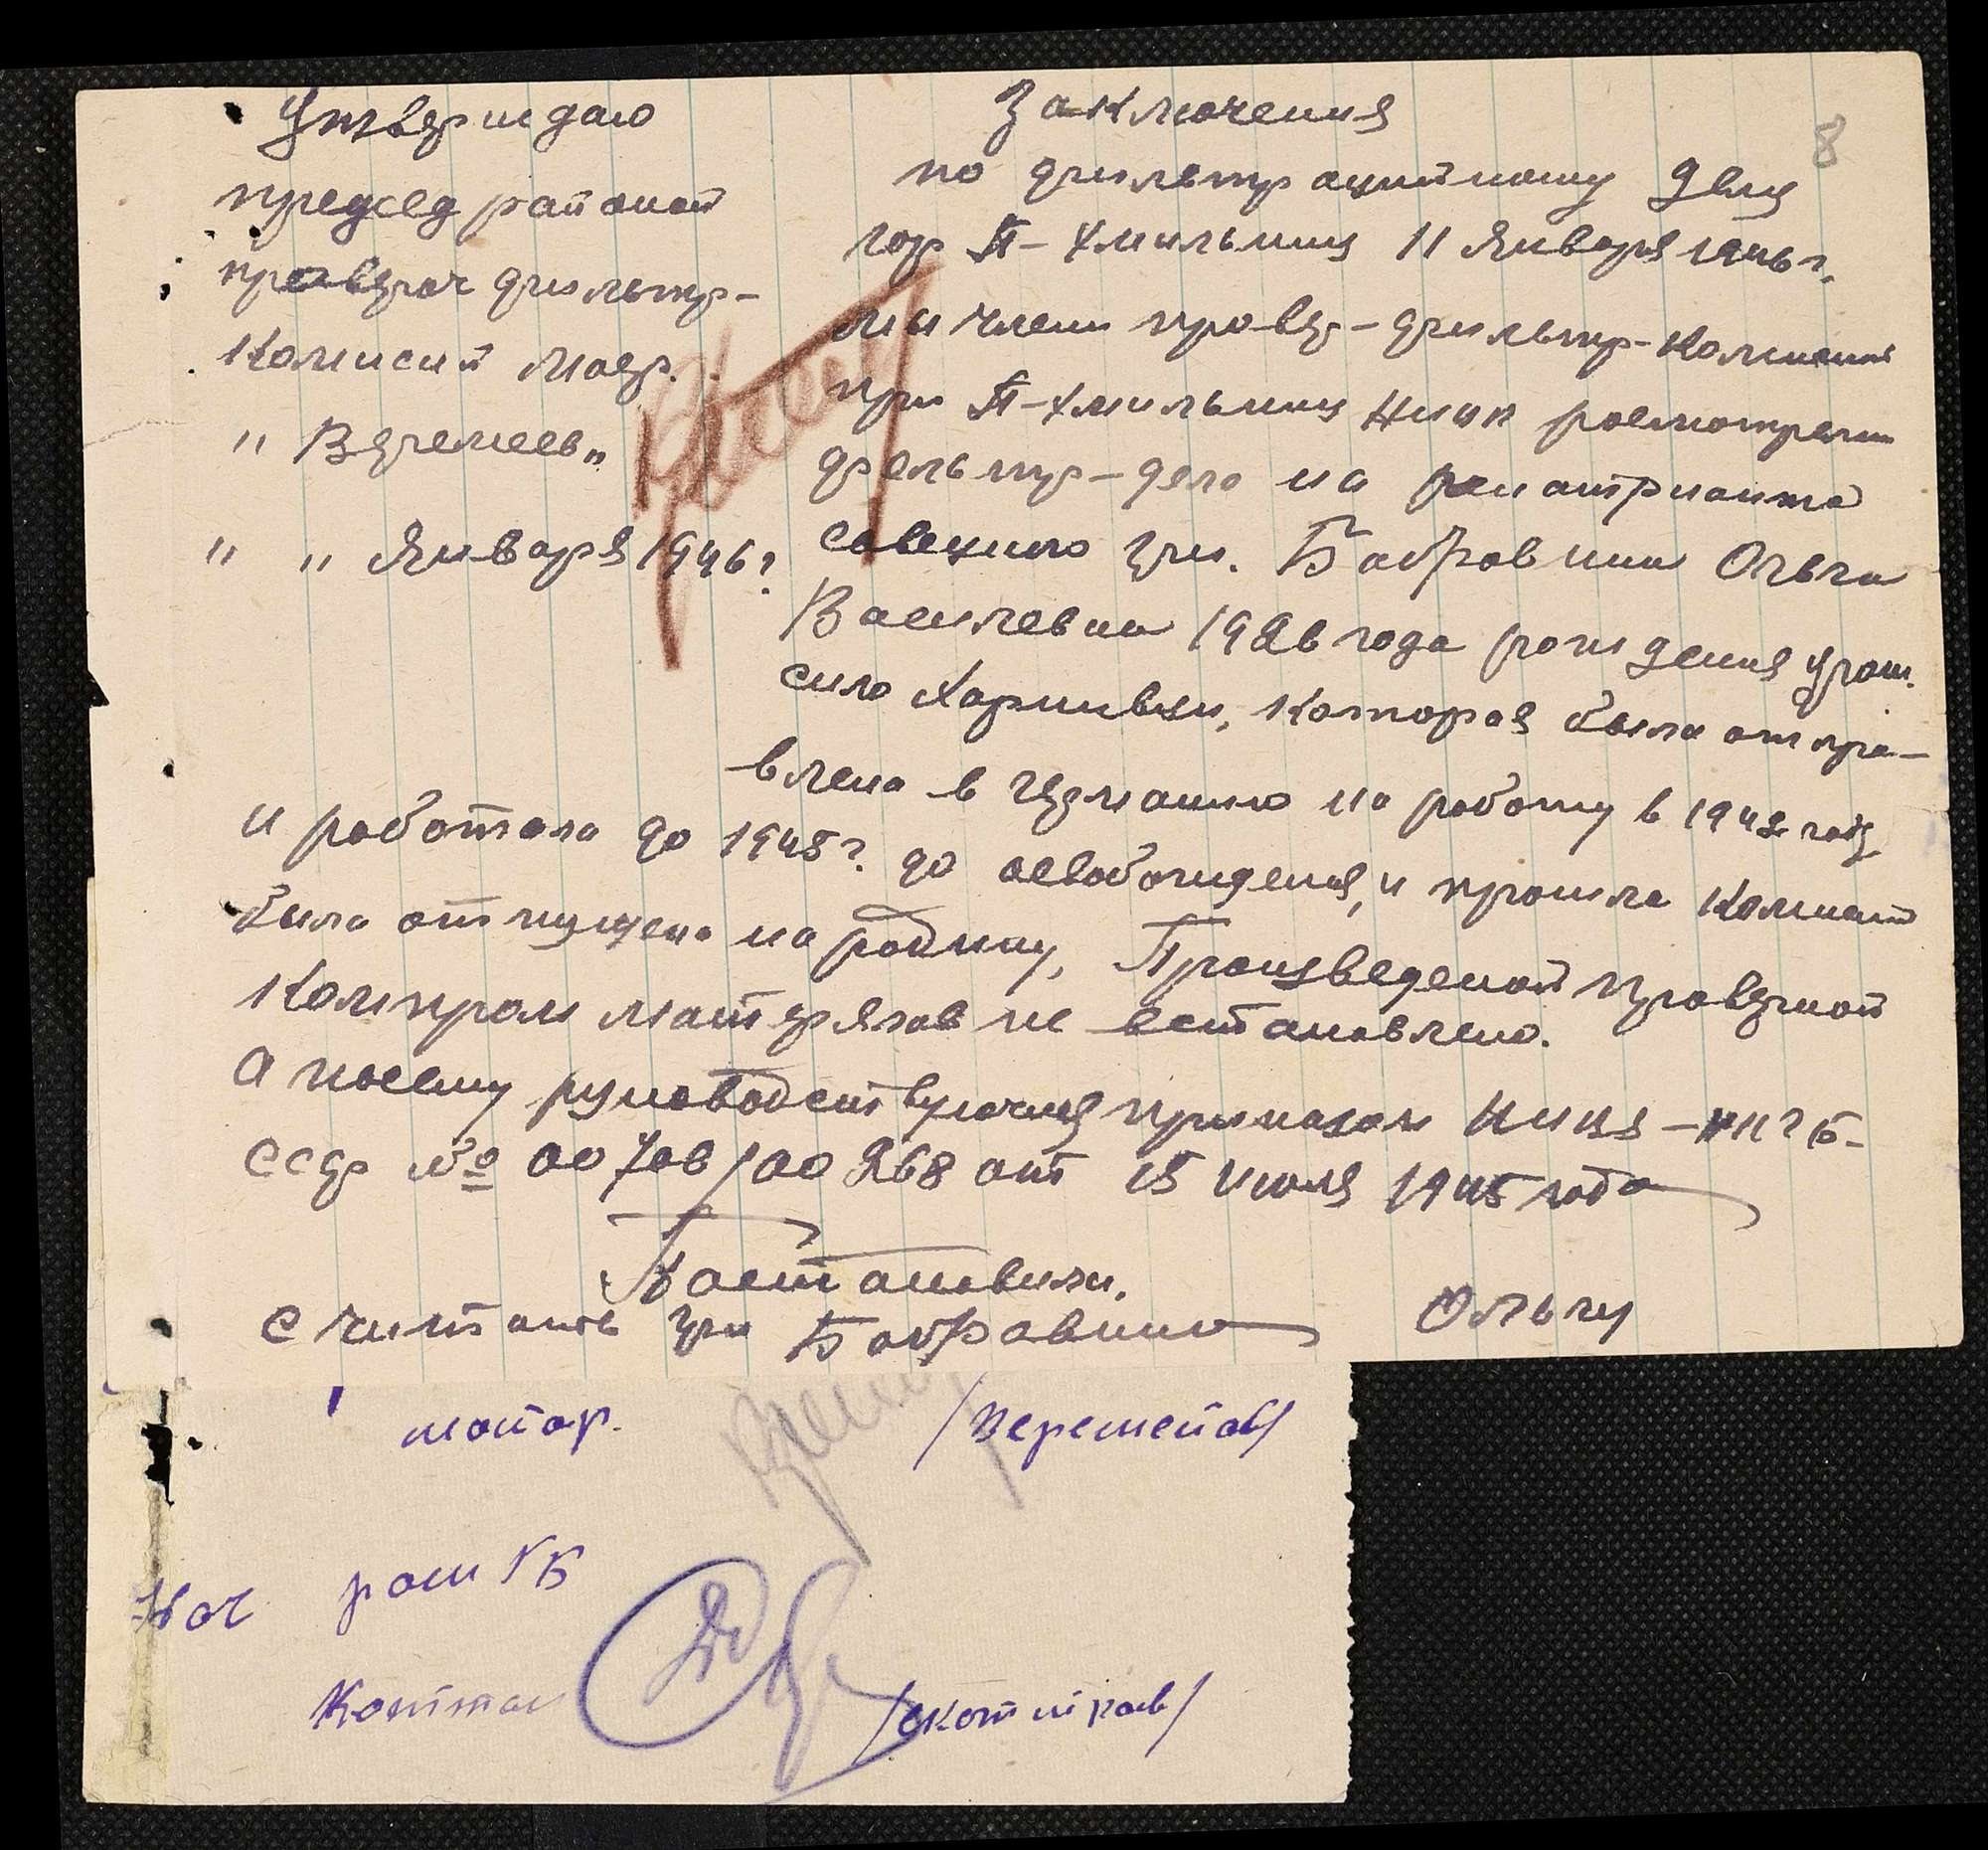 Утверждаю
председ районой
проверач фильтр-
Комисий маер.
" Веремеев "
" " Января 1946 г.
8
Заключения
по фильтрацийному делу
гор П-Хмильниц 11 Января 1946 г.
мы члены провер-фильтр-комисий
при П-Хмильниц росмотрели
фельтр-дело на репатрианта
совецкого гр. Бобровник Ольга
Василевна 1926 года рождения урож.
село Харпивци, которая была отпра-
влена в германию на работу в 1942 году
и работала до 1945 г. до освобождения, и прошла комисий
была отпущена на родину, Произведеной проверкой
Компром матерялов не встановлено.
А посему руководствуючиз приказом НКВД - НКГБ -
ССР № 00706/00268 от 15 Июля 1945 года
Постановили.
Считать гр Бобровник Ольгу
маиор. /Веремейов/
Нач РОМГБ
Капитан